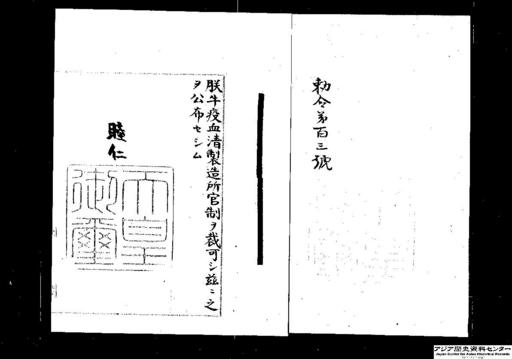 勅令第百三號
朕牛疫血清製造所官制ヲ裁可シ茲ニ之
ヲ公布セシム
睦仁
天皇
御璽
アジア歴史資料センター
Japan Center for Asian Historical Records